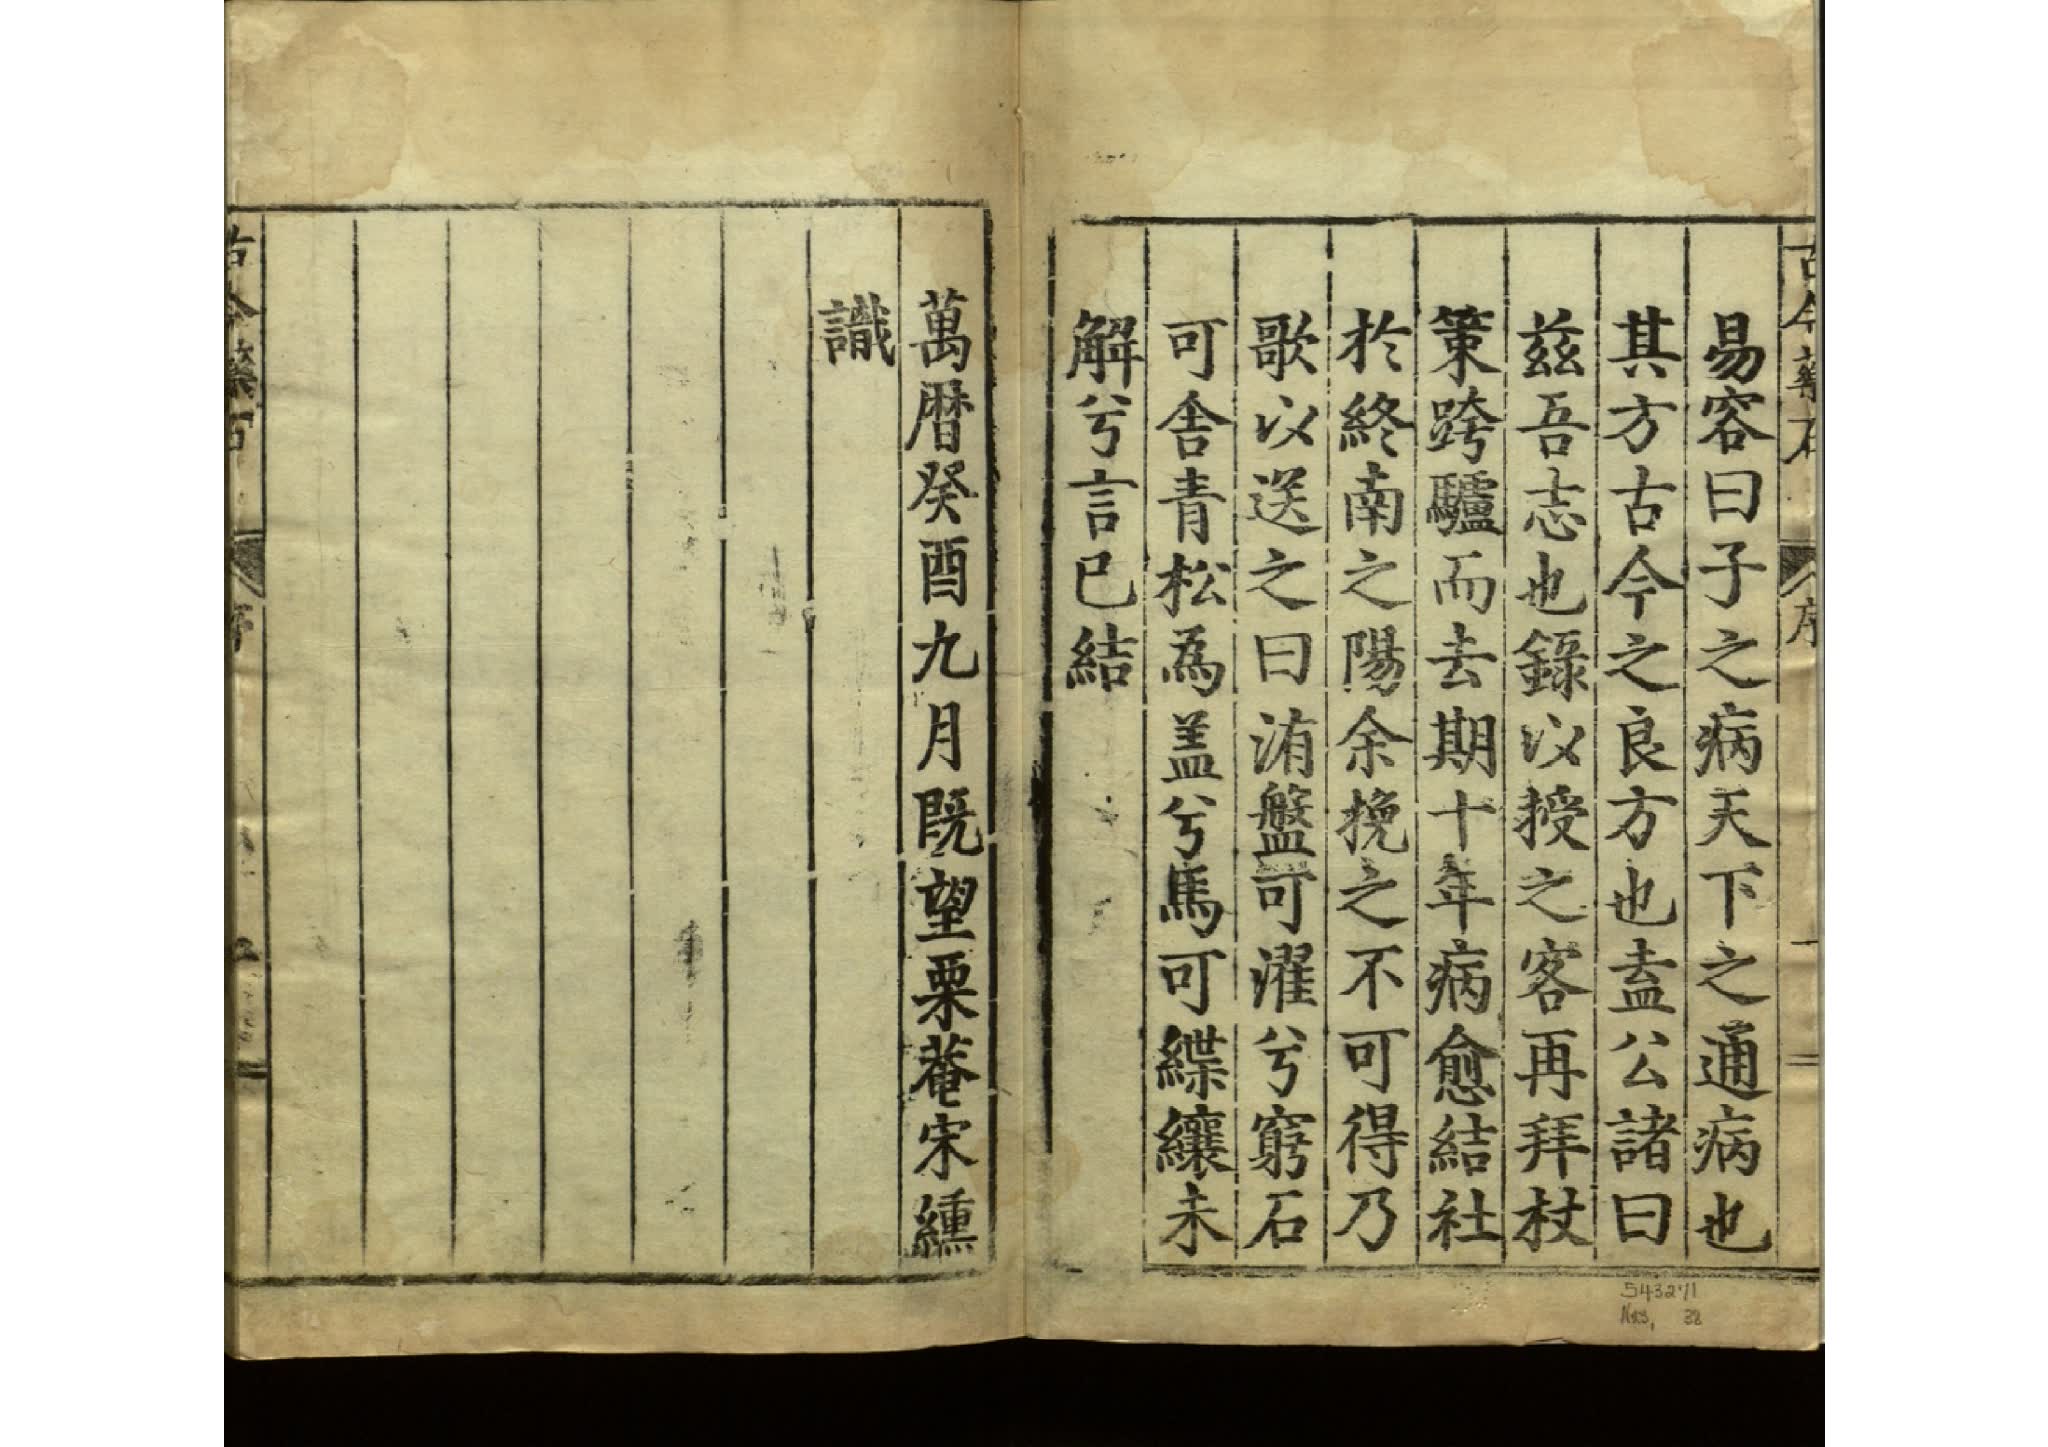 古今藥石
序
易容曰子之病天下之通病也
其方古今之良方也盍公諸曰
兹吾志也錄以授之客再拜杖
策跨驢而去期十年病愈結社
於終南之陽余挽之不可得乃
歌以送之曰洧盤可濯兮窮石
可舍青松為盖兮馬可緤纕未
解兮言已結
萬曆癸酉九月既望栗菴宋纁
識
古今藥石
序
54321/1
38